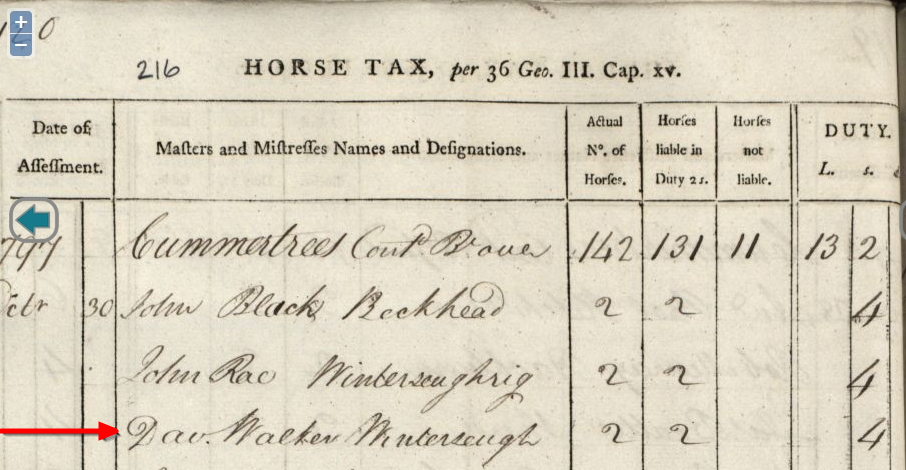 120
216 HORSE TAX, per 36 Geo. III. Cap. xv.
Date of Assessment.
Masters and Mistresses Names and Designations.
Actual No. of Horses.
Horses liable in Duty 2s.
Horses not liable.
DUTY.
L. s. d
797 Cummertrees Contd. Br. over 142 131 11 13 2
Octr 30 John Black Beckhead 2 2 4
John Rae Winterseughrig 2 2 4
Dav. Walker Winterseugh 2 2 4